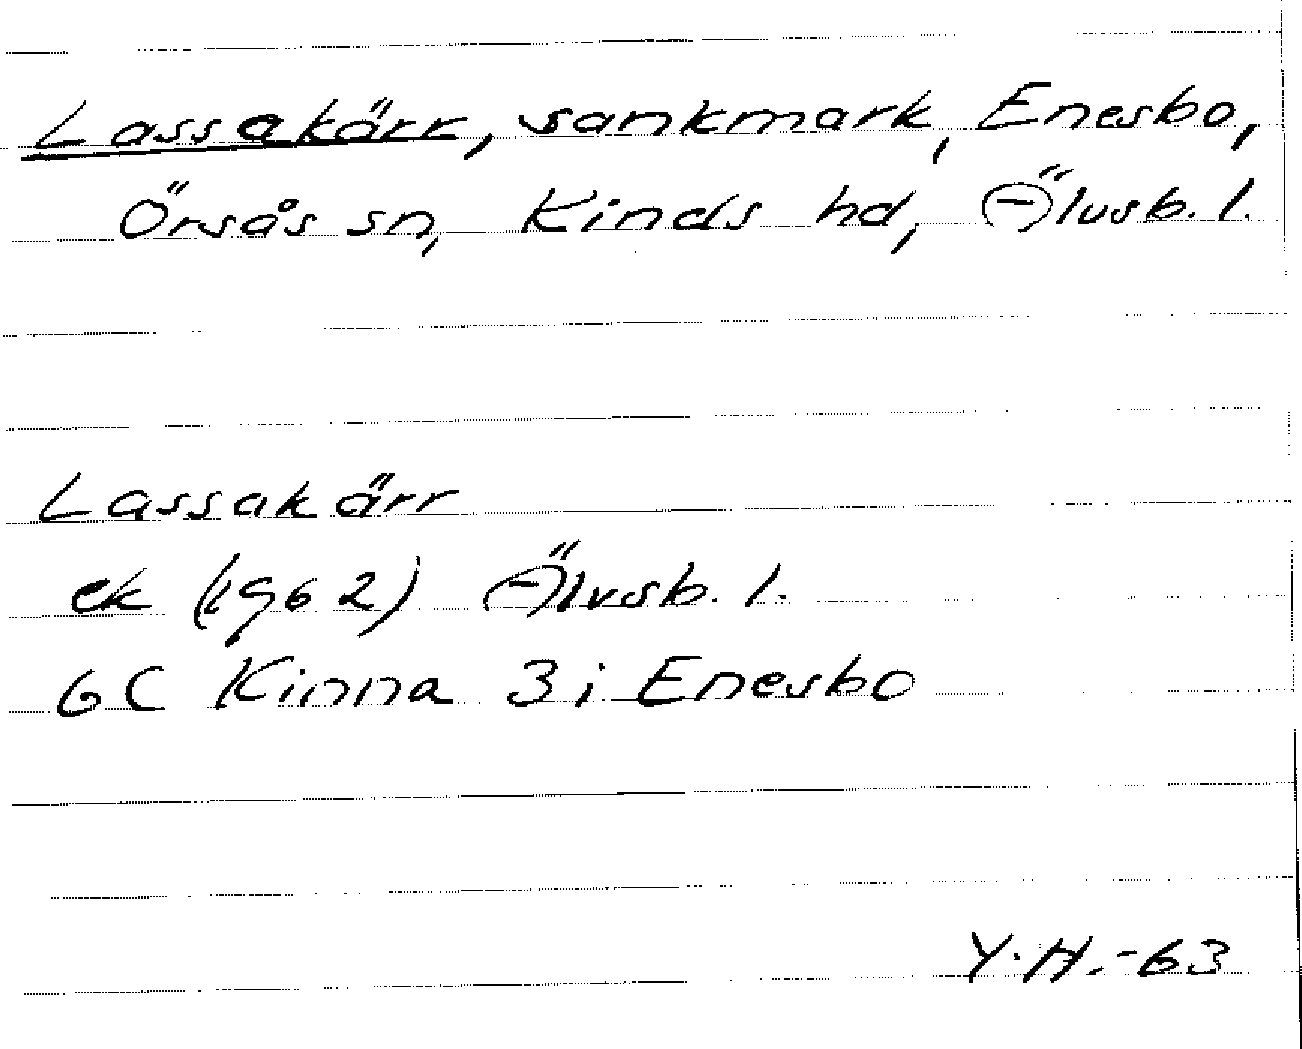 Lassakärr, sankmark, Enesbo,
Örsås sn, Kinds hd, Älvsb. l.
Lassakärr
ek (1962) Älvsb. l.
6C Kinna 3i Enesbo
Y.H.-63